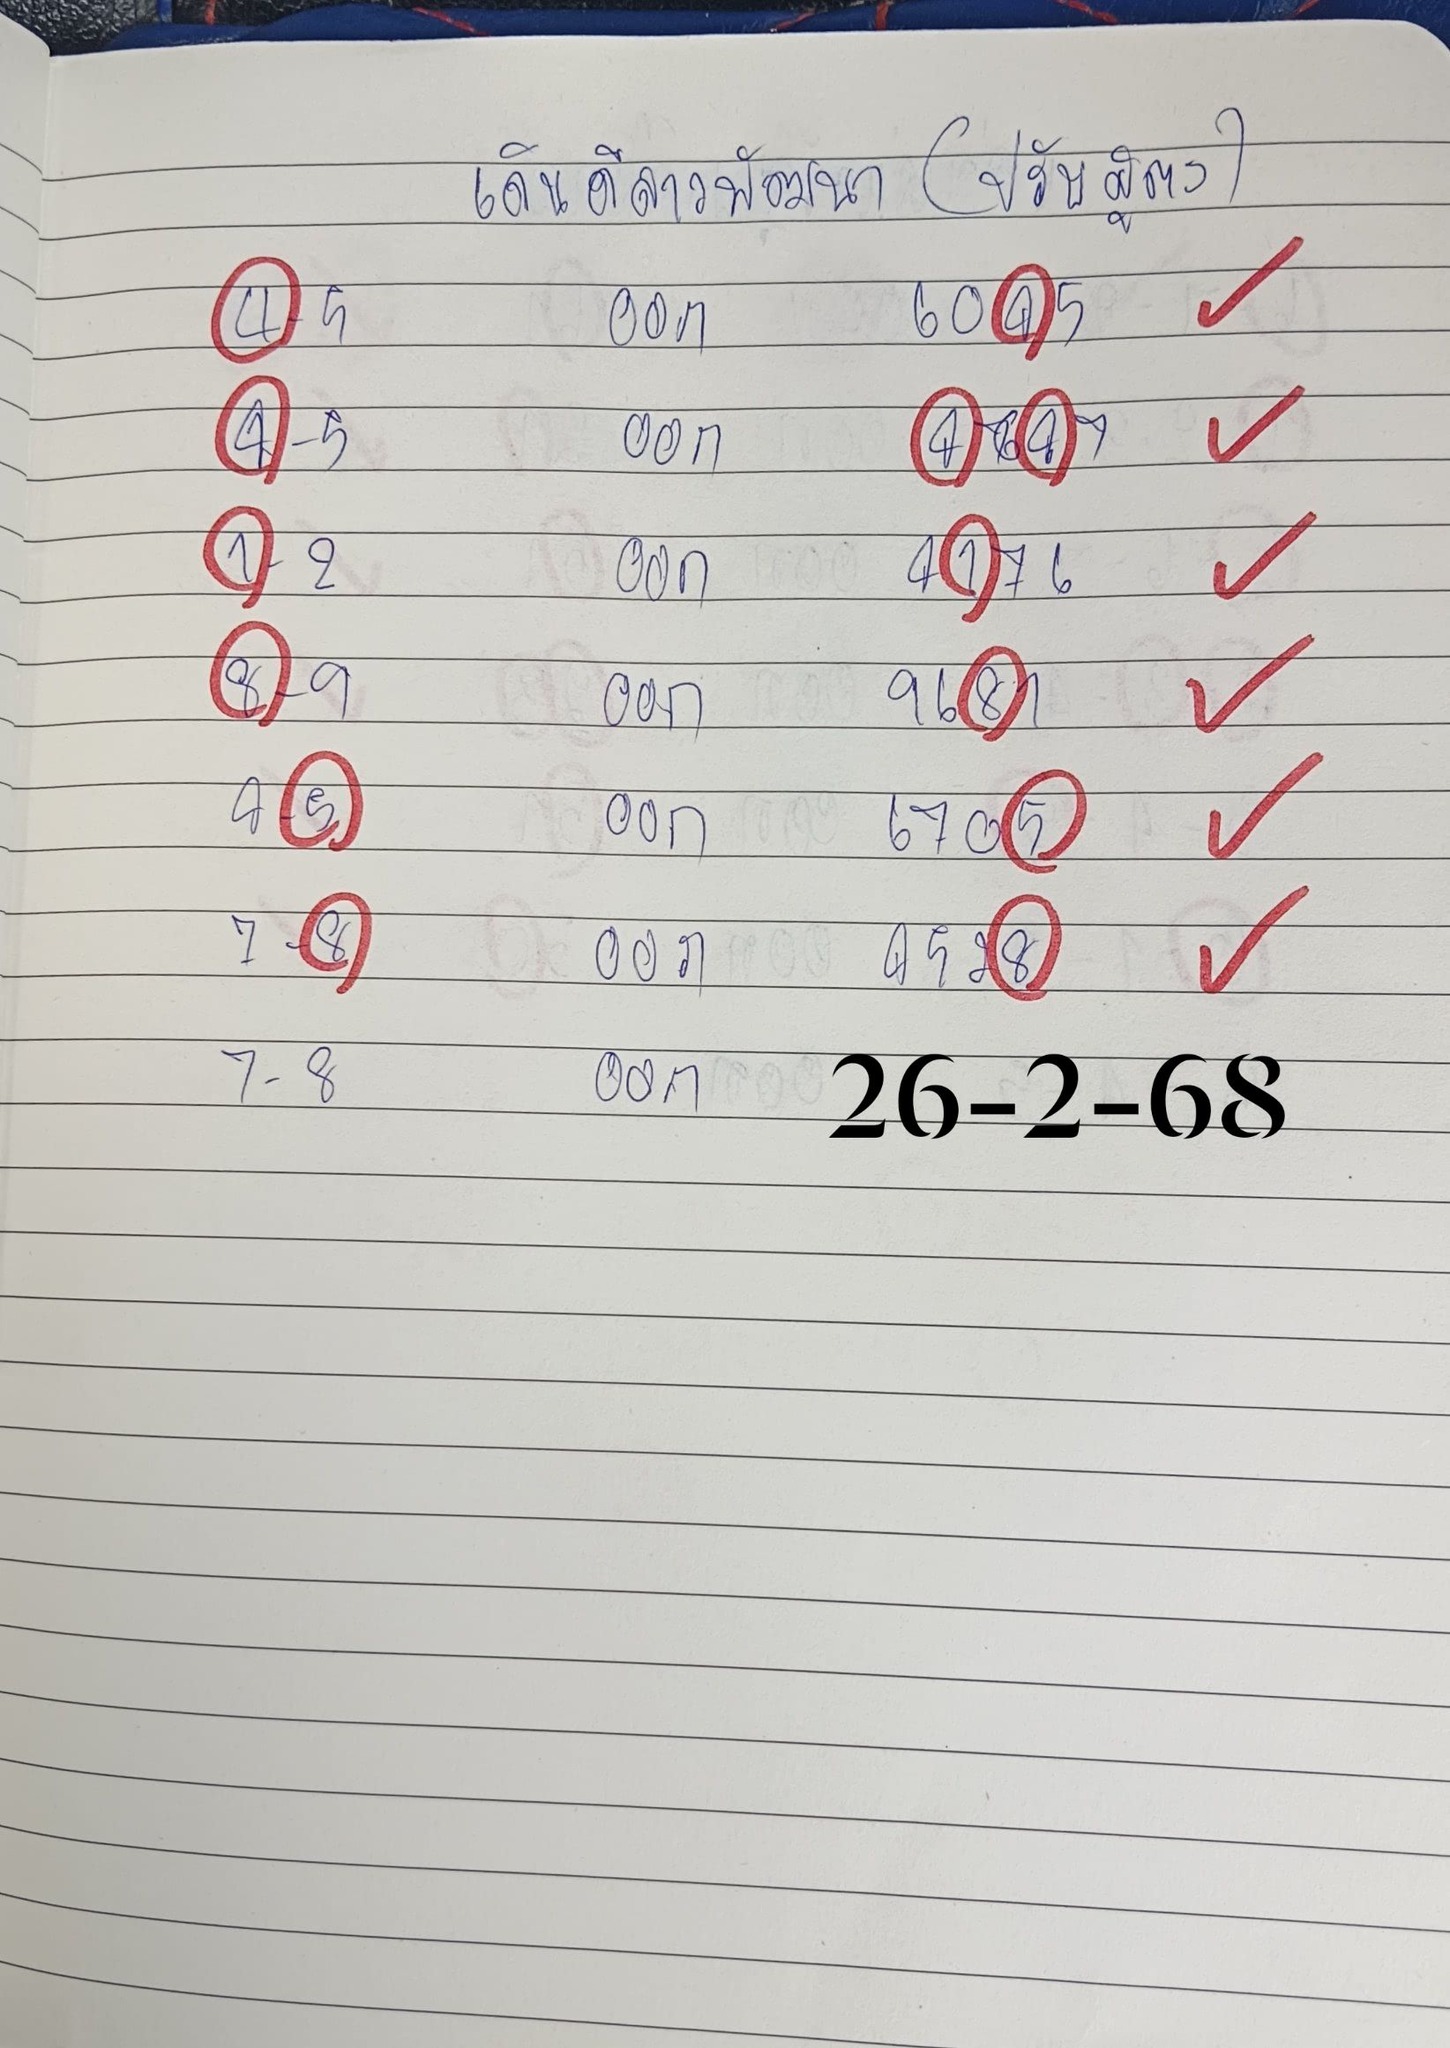 เดินดีลาวพัฒนา (ปรับสูตร)
4-5 ออก 6045
4-5 ออก 4647
1-2 ออก 4176
8-9 ออก 9681
4-5 ออก 6705
7-8 ออก 4528
7-8 ออก 26-2-68